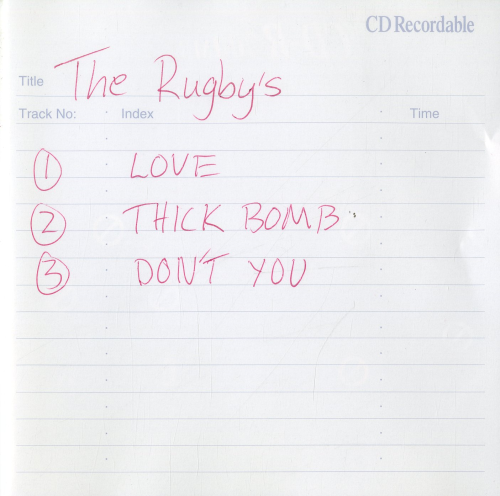 CD Recordable
Title The Rugby's
Track No: Index Time
1 LOVE
2 THICK BOMB
3 DON'T YOU